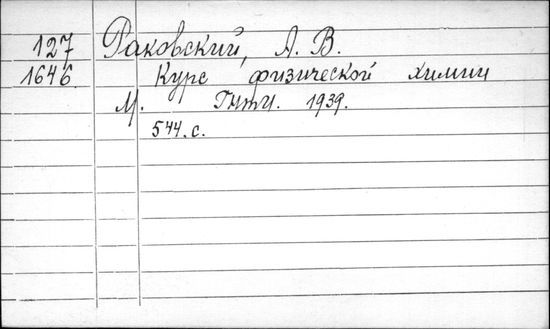 127 Раковский, А. В.
1646 Курс физической химии
М. ГНТИ. 1939.
544.с.